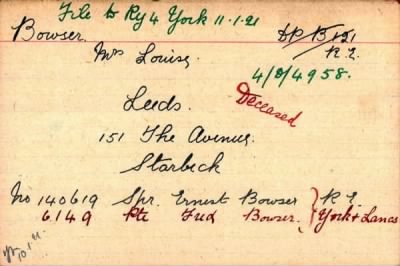 File to Ry 4 York 11.1.21
Bowser.
DP B 121
R.E.
Mrs Louisa
4/D/4958.
Deceased
Leeds.
151 The Avenue.
Starbeck
No 140619 Spr. Ernest Bowser R.E.
6149 Pte Fred Bowser. York & Lancs